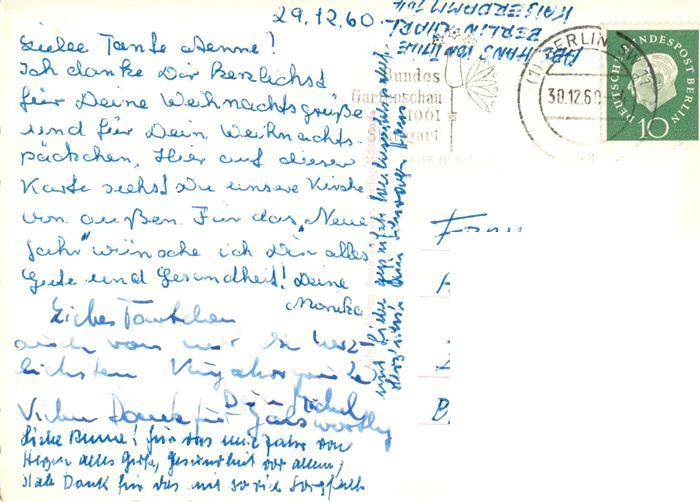 29.12.60.
Liebe Tante Aenne!
Ich danke Dir herzlichst
für Deine Weihnachtsgrüße
und für Dein Weihnachts-
päckchen. Hier auf dieser
Karte siehst Du unsere Kirche
von außen. Für das „Neue
Jahr" wünsche ich Dir alles
Gute und Gesundheit! Deine
Monika
Liebes Tantchen
auch von mir die herz-
lichsten Neujahrsgrüße
Dein Michel
Vielen Dank für Galsworthy
Liebe Anne! für das neue Jahr von
Herzen alles Gute, Gesundheit vor allem,
Hab Dank für das mit so viel Sorgfalt
und Liebe gepackte Weihnachtspaket.
Herzlichst Dein Schwager Hans
ABS. HANS
BERLIN CHARL.
KAISERDAMM 104
Bundes
Gartenschau
1961
Stuttgart
(1) BERLIN
30.12.60
DEUTSCHE BUNDESPOST BERLIN
10
Frau